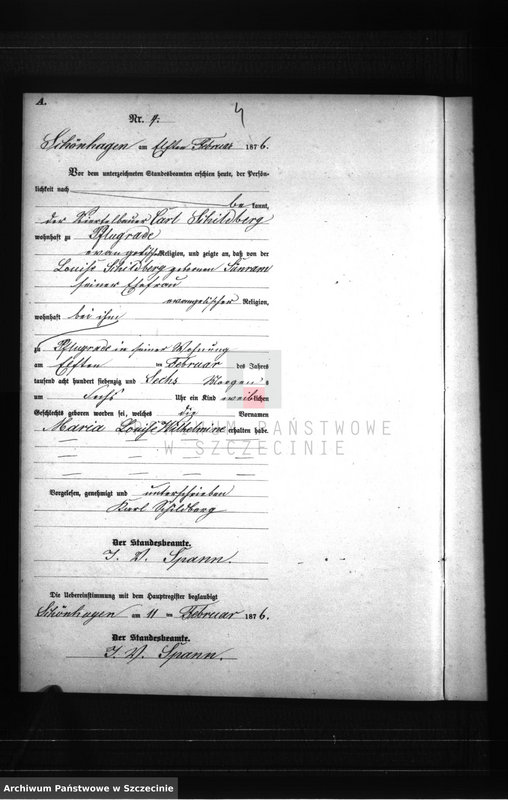 A.
4
Nr. 9.
Schönhagen am Elften Februar 1876.
Vor dem unterzeichneten Standesbeamten erschien heute, der Persön-
lichkeit nach
bekannt,
der Viertelbauer Carl Schildberg
wohnhaft zu Pflugrade
evangelischer Religion, und zeigte an, daß von der
Louise Schildberg geborenen
seiner Ehefrau
evangelischer Religion,
wohnhaft bei ihm
zu Pflugrade in seiner Wohnung
am Elften ten Februar des Jahres
tausend acht hundert siebenzig und Sechs Morgens
um Sechs Uhr ein Kind weiblichen
Geschlechts geboren worden sei, welches die Vornamen
Maria Louise Wilhelmine erhalten habe.
Vorgelesen, genehmigt und unterschrieben
Karl Schildberg
Der Standesbeamte.
I. V. Spann.
Die Uebereinstimmung mit dem Hauptregister beglaubigt
Schönhagen am 11 ten Februar 1876.
Der Standesbeamte.
I. V. Spann.
ARCHIWUM PAŃSTWOWE
W SZCZECINIE
Archiwum Państwowe w Szczecinie